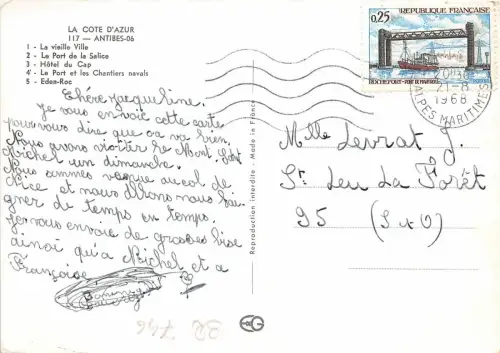 LA COTE D'AZUR
117 — ANTIBES-06
1 - La vieille Ville
2 - Le Port de la Salice
3 - Hôtel du Cap
4 - Le Port et les Chantiers navals
5 - Eden-Roc
Chère Jacqueline.
Je vous envoie cette carte
pour vous dire que ça va bien.
Nous avons visiter le Mont
Michel un dimanche.
Nous sommes venue au col de
Nice et nous allons nous bai-
gner de temps en temps.
Je vous envoie de grosses bise
ainsi qu'a Michel et a
Françoise
Reproduction interdite - Made in France
RÉPUBLIQUE FRANÇAISE
0,25
POSTES
ROCHEFORT - PONT DE MARTROU
21-8
1968
ALPES MARITIMES
Mlle Levrat J.
St Leu La Forêt
95 (S & O)